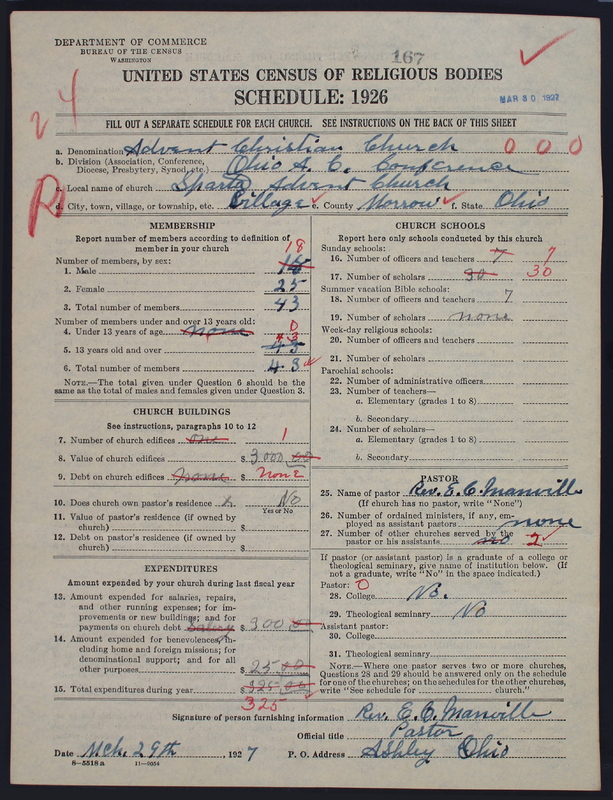 167
DEPARTMENT OF COMMERCE
BUREAU OF THE CENSUS
WASHINGTON
UNITED STATES CENSUS OF RELIGIOUS BODIES
SCHEDULE: 1926
MAR 30 1927
24
FILL OUT A SEPARATE SCHEDULE FOR EACH CHURCH. SEE INSTRUCTIONS ON THE BACK OF THIS SHEET
a. Denomination Advent Christian Church 0 0 0
b. Division (Association, Conference, Diocese, Presbytery, Synod, etc.) Ohio A. C. Conference
c. Local name of church Sparta Advent Church
R
d. City, town, village, or township, etc. Village e. County Morrow f. State Ohio
MEMBERSHIP
Report number of members according to definition of
member in your church
Number of members, by sex: 18
1. Male
2. Female 25
3. Total number of members 43
Number of members under and over 13 years old:
4. Under 13 years of age none 0
5. 13 years old and over 43
6. Total number of members 43
NOTE.—The total given under Question 6 should be the
same as the total of males and females given under Question 3.
CHURCH BUILDINGS
See instructions, paragraphs 10 to 12
7. Number of church edifices one 1
8. Value of church edifices $ 3000 00
9. Debt on church edifices none $ none
10. Does church own pastor's residence No
Yes or No
11. Value of pastor's residence (if owned by
church) $
12. Debt on pastor's residence (if owned by
church) $
EXPENDITURES
Amount expended by your church during last fiscal year
13. Amount expended for salaries, repairs,
and other running expenses; for im-
provements or new buildings; and for
payments on church debt Salary $ 300 00
14. Amount expended for benevolences, in-
cluding home and foreign missions; for
denominational support; and for all
other purposes $ 25 00
15. Total expenditures during year $ 325 00
325
CHURCH SCHOOLS
Report here only schools conducted by this church
Sunday schools:
16. Number of officers and teachers 7 7
17. Number of scholars 30 30
Summer vacation Bible schools:
18. Number of officers and teachers 7
19. Number of scholars none
Week-day religious schools:
20. Number of officers and teachers
21. Number of scholars
Parochial schools:
22. Number of administrative officers
23. Number of teachers—
a. Elementary (grades 1 to 8)
b. Secondary
24. Number of scholars—
a. Elementary (grades 1 to 8)
b. Secondary
PASTOR
25. Name of pastor Rev. E. C. Manville
(If church has no pastor, write "None")
26. Number of ordained ministers, if any, em-
ployed as assistant pastors none
27. Number of other churches served by the
pastor or his assistants no 2
If pastor (or assistant pastor) is a graduate of a college or
theological seminary, give name of institution below. (If
not a graduate, write "No" in the space indicated.)
Pastor: 0
28. College No.
29. Theological seminary No
Assistant pastor:
30. College
31. Theological seminary
NOTE.—Where one pastor serves two or more churches,
Questions 28 and 29 should be answered only on the schedule
for one of the churches; on the schedules for the other churches,
write "See schedule for church."
Signature of person furnishing information Rev. E. C. Manville
Official title Pastor
Date Mch. 29th, 1927 P. O. Address Ashley Ohio
8—5518a 11—9054